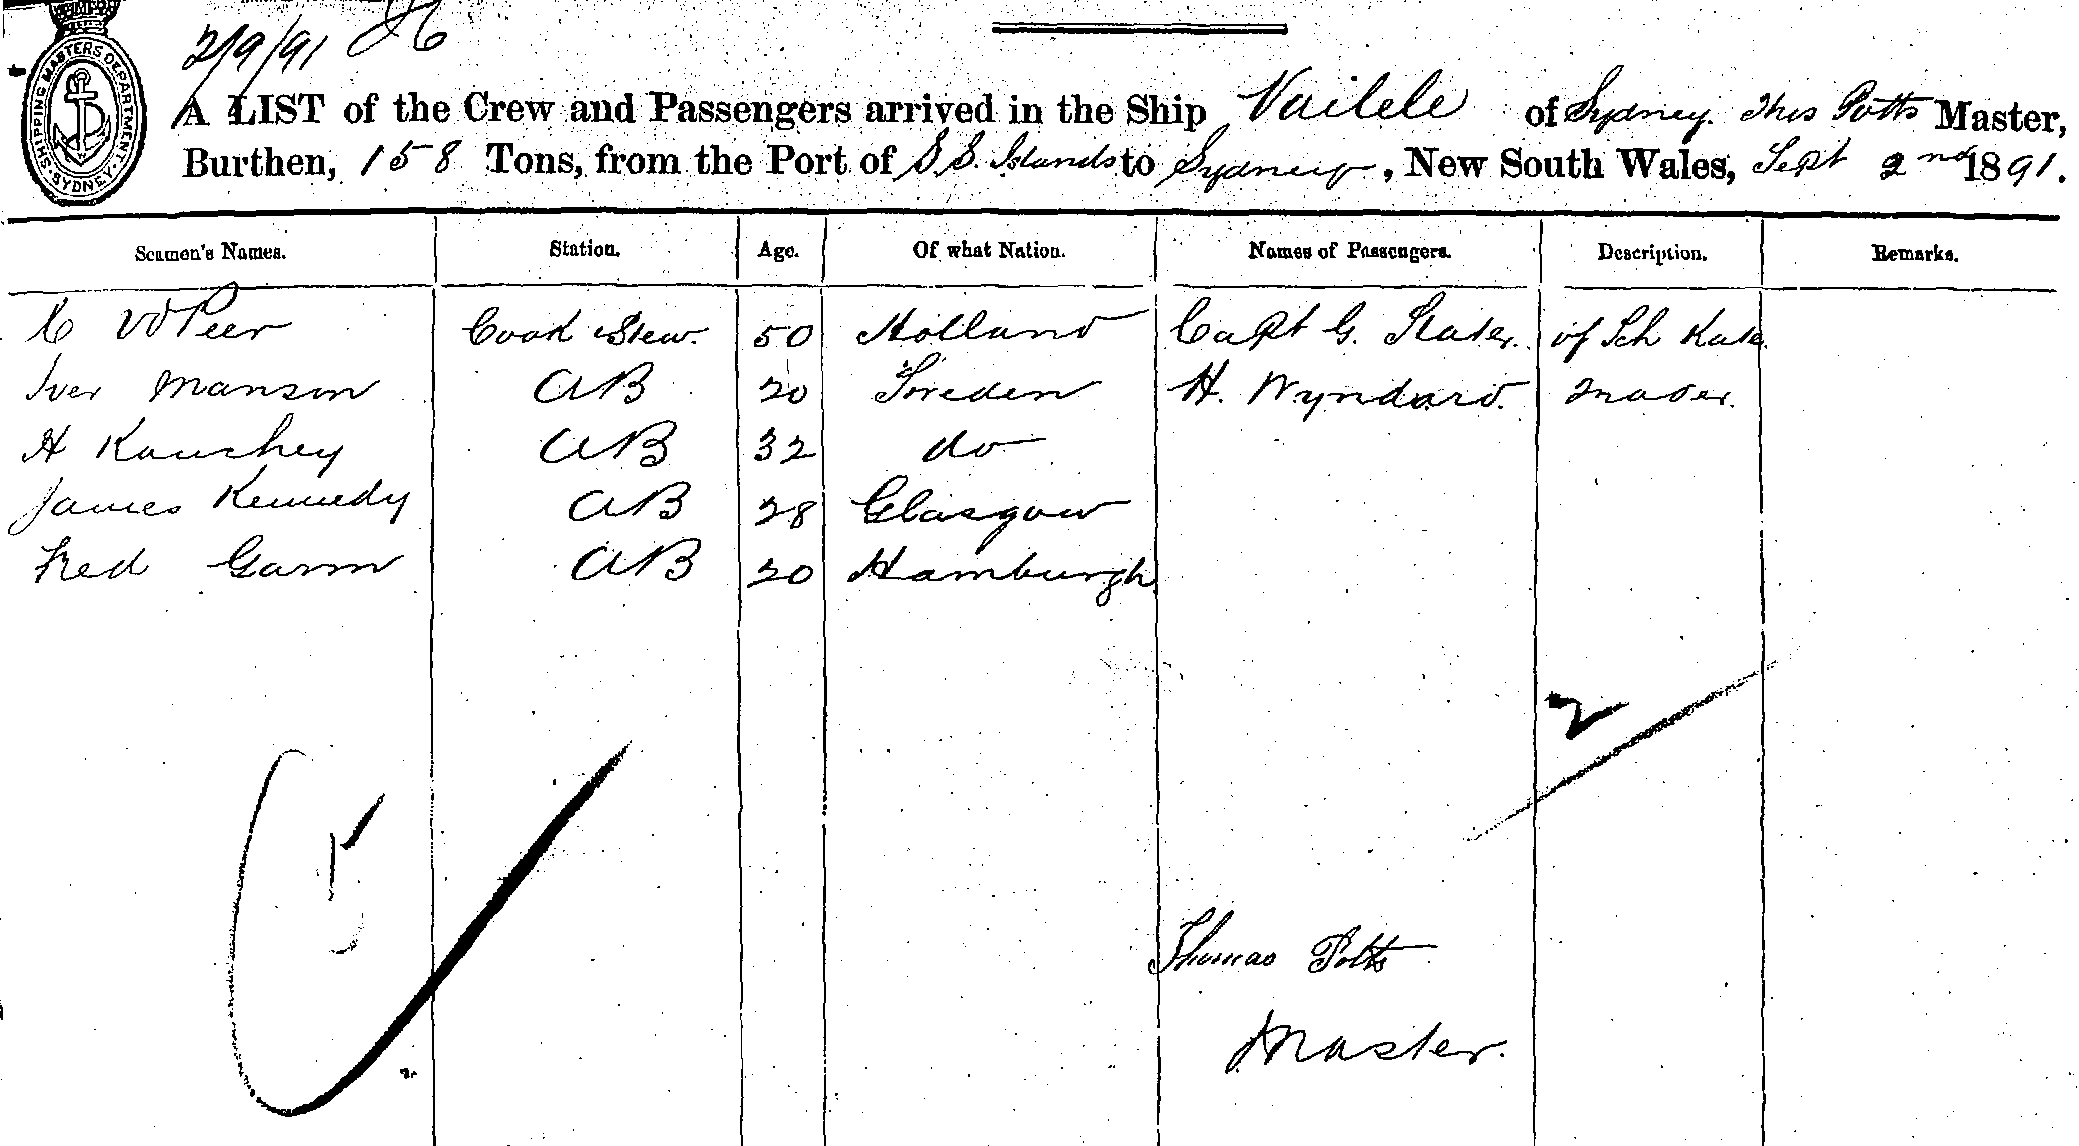 2/9/91
SHIPPING MASTERS DEPARTMENT. SYDNEY.
A LIST of the Crew and Passengers arrived in the Ship Vailele of Sydney. Thos Potts Master,
Burthen, 158 Tons, from the Port of S.S. Islands to Sydney, New South Wales, Sept 2nd 1891.
Seamen's Names. Station. Age. Of what Nation. Names of Passengers. Description. Remarks.
C Peer Cook Stew. 50 Holland Capt G. of Sch Kate
Iver Manson AB 20 Sweden H. Wyndard.
H Kauchey AB 32 do
James Kennedy AB 28 Glasgow
Fred Garm AB 20 Hamburgh
2
5
Thomas Potts
Master.